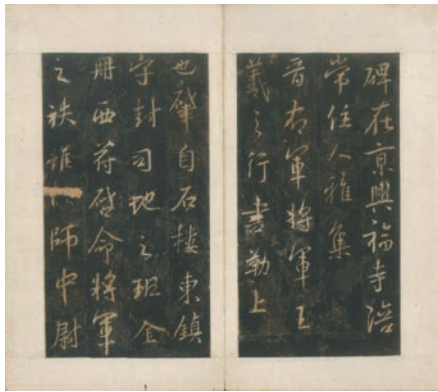 碑在京興福寺陪
常住人雅集
晉右軍將軍王
羲之行書勒上
也肇自石樓東鎮
字封司地之班金
冊西符啓命將軍
之袟誰師中尉